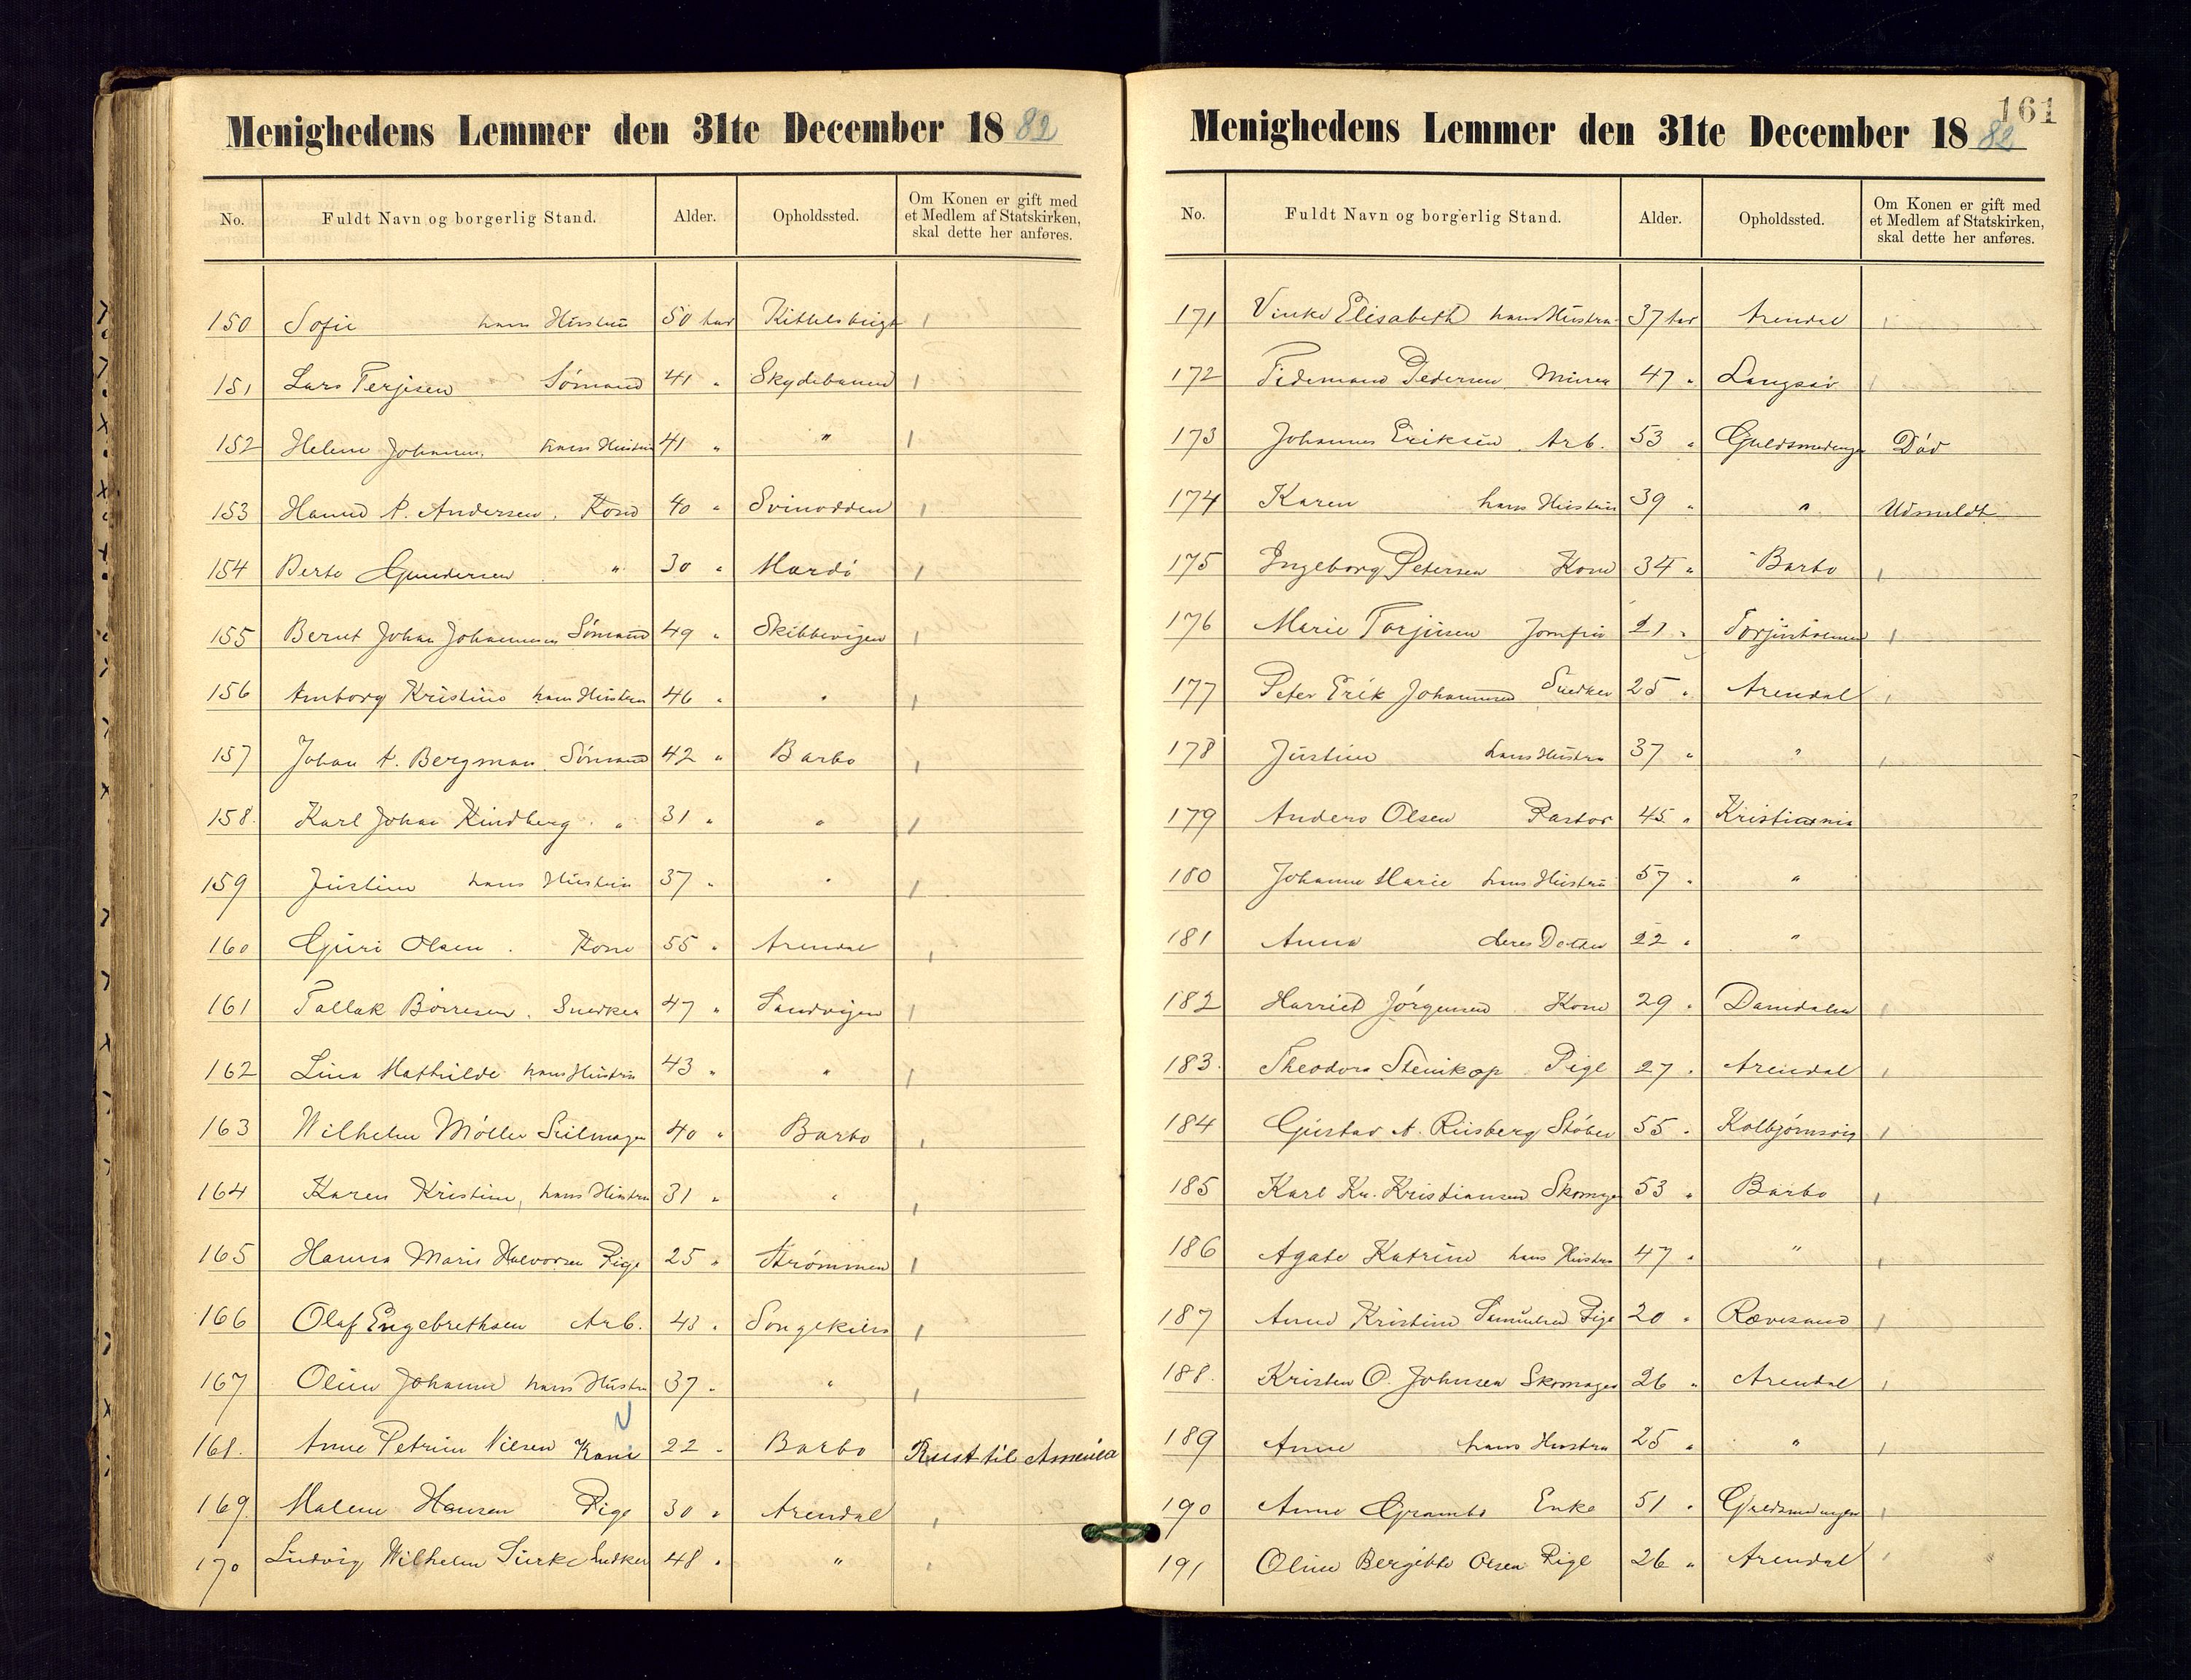 Menighedens Lemmer den 31te December 1882
No. Fuldt Navn og borgerlig Stand. Alder. Opholdssted. Om Konen er gift med et Medlem af Statskirken, skal dette her anføres.
150 Sofie hans Hustru 50 Aar
151 Lars Terjesen Sømand 41 "
152 Helene Johanne, hans Hustru 41 " "
153 A. Andersen, Kone 40 " Svinodden
154 Berte Gundersen " 30 "
155 Bernt Johan Johannesen Sømand 49 " Skibbevigen
156 Amborg Kristine hans Hustru 46 " "
157 Johan A. Bergman. Sømand 42 " Barbo
158. Karl Johan Kindberg. " 31 " "
159 Justine hans Hustru 37 " "
160 Guri Olsen. Kone 55 " Arendal
161 Tallak Børresen. Snedker 47 " Sandvigen
162 Lina Mathilde hans Hustru 43 " "
163 Wilhelm Møller Seilmager 40 " Barbo
164 Karen Kristine, hans Hustru 31 " "
165 Hanna Marie Halvorsen Pige 25 " Strømmen
166 Olaf Engebrethsen Arb. 43 " Songekilen
167 Oline Johanne hans Hustru 37 " "
168. Anne Petrine Nilsen Kone 22 " Barbo Reist til America
169 Malene Hansen Pige 30 " Arendal
170 Ludvig Wilhelm Snedker 48 " "
161
Menighedens Lemmer den 31te December 1882
No. Fuldt Navn og borgerlig Stand. Alder. Opholdssted. Om Konen er gift med et Medlem af Statskirken, skal dette her anføres.
171 Elisabeth hans Hustru 37 Aar Arendal
172 Tidemand Pedersen Murer 47 " Langsæv
173 Johannes Eriksen Arb. 53 " Død
174 Karen hans Hustru 39 " " Udmeldt
175 Ingeborg Petersen Kone 34 " Barbo
176 Marie Torjusen Jomfru 21 " Torjusholmen
177 Peter Erik Johannesen Snedker 25 " Arendal
178 Justine hans Hustru 37 " "
179 Anders Olsen Pastor 45 " Kristiania
180 Johanne Marie hans Hustru 57 " "
181 Anna deres Datter 22 " "
182 Harriet Jørgensen Kone 29 " Damdalen
183. Theodora Stenikop Pige 27 " Arendal
184 Gustav A. Riisberg Støber 55 " Kolbjørnsvig
185 Karl Kr. Kristiansen Skomager 53 " Barbo
186 Agate Katrine hans Hustru 47 " "
187 Anne Kristine Samuelsen Pige 20 " Rævesand
188. Kristen O. Johnsen Skomager 26 " Arendal
189 Anne hans Hustru 25 " "
190 Anne Grambo Enke 51 "
191 Oline Bergitte Olsen Pige 26 " Arendal